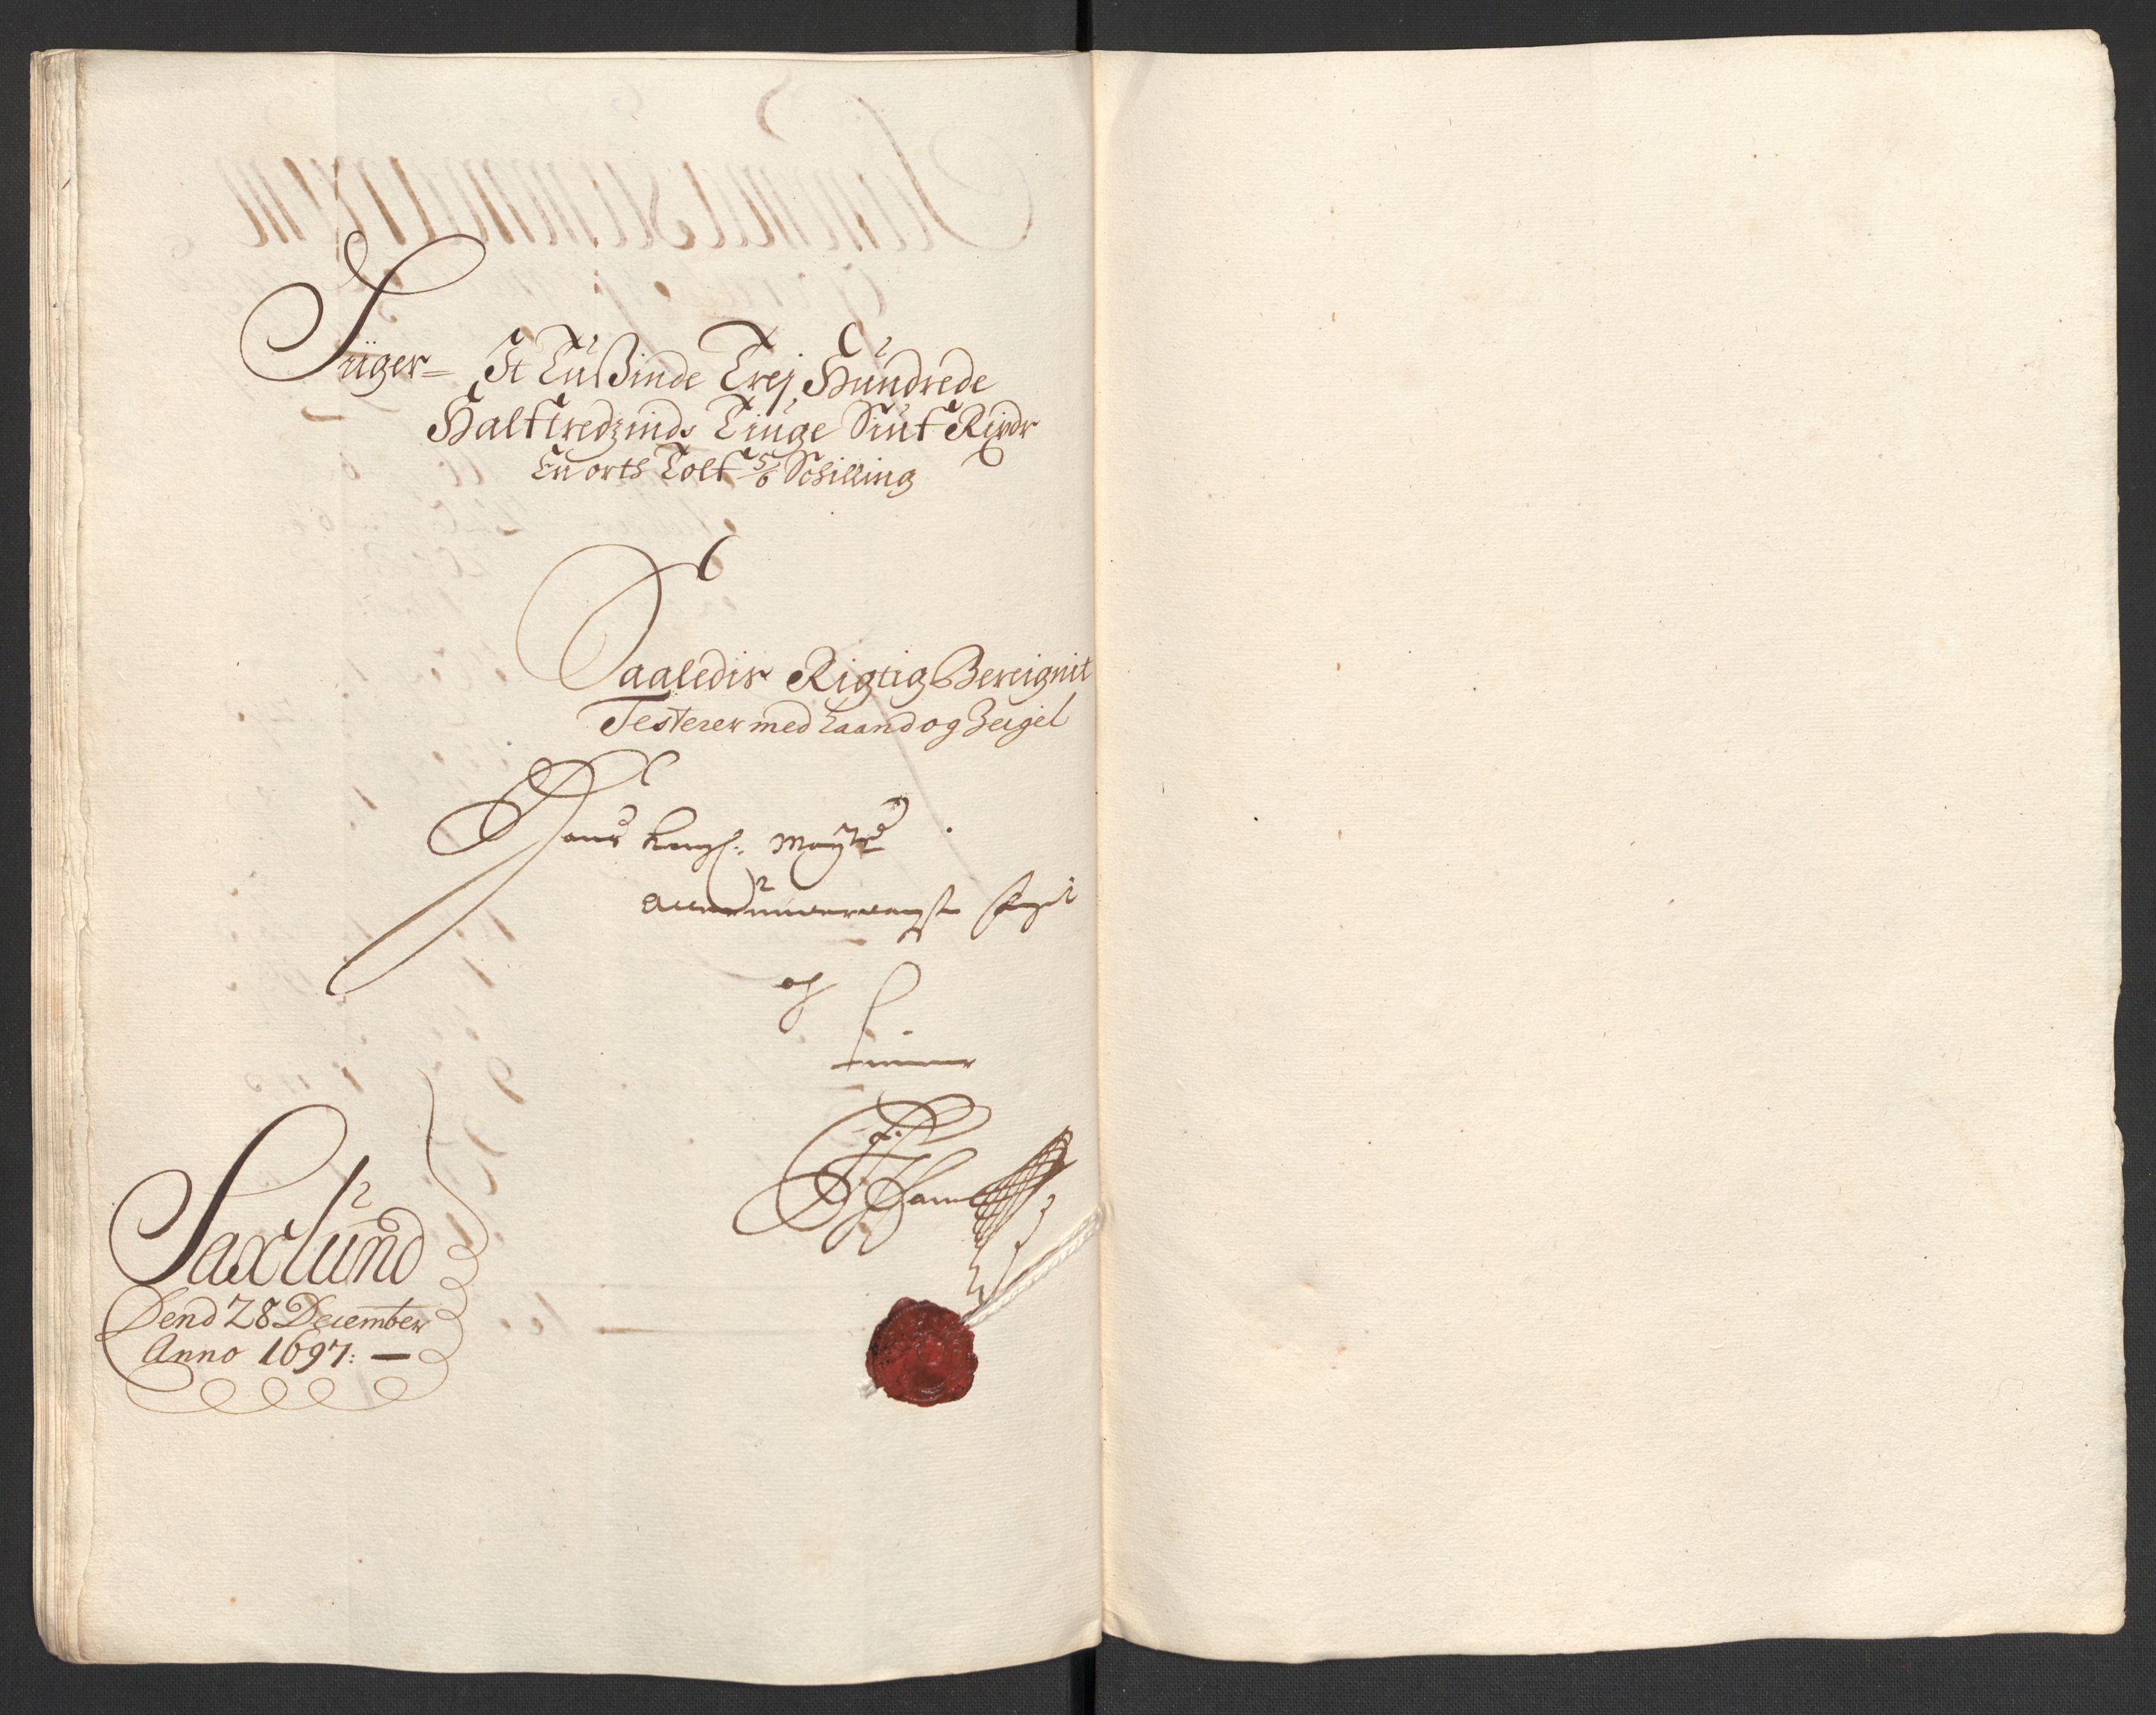 Siiger = Et Tußinde Trej Hundrede
Halftredzinds Tiuge Siuf Rixdr
En orth Tolf 5/6 Schilling
Saaledis Rigtig Bereignit
Testerer med haand og Zeigel
Hans kongl: Mayts
og
Saxlund
Dend 28 December
Anno 1697: —